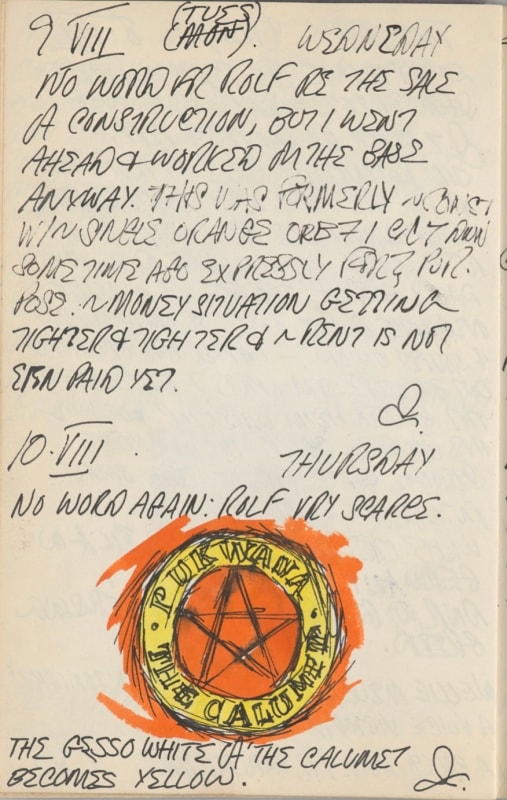 (TUES)
9 VIII (MON). WEDNEDAY
NO WORD FR ROLF RE THE SALE
OF CONSTRUCTION, BUT I WENT
AHEAD & WORKED ON THE BASE
ANYWAY. THIS WAS FORMERLY ~ CONST
W/ ~ SINGLE ORANGE ORB I CUT
SOMETIME AGO EXPRESSLY PUR-
POSE. ~ MONEY SITUATION GETTING
TIGHTER & TIGHTER & ~ RENT IS NOT
EVEN PAID YET.
10. VIII THURSDAY
NO WORD AGAIN: ROLF VRY SCARCE.
· PUKWANA ·
THE CALUMET
THE GESSO WHITE OF THE CALUMET
BECOMES YELLOW.